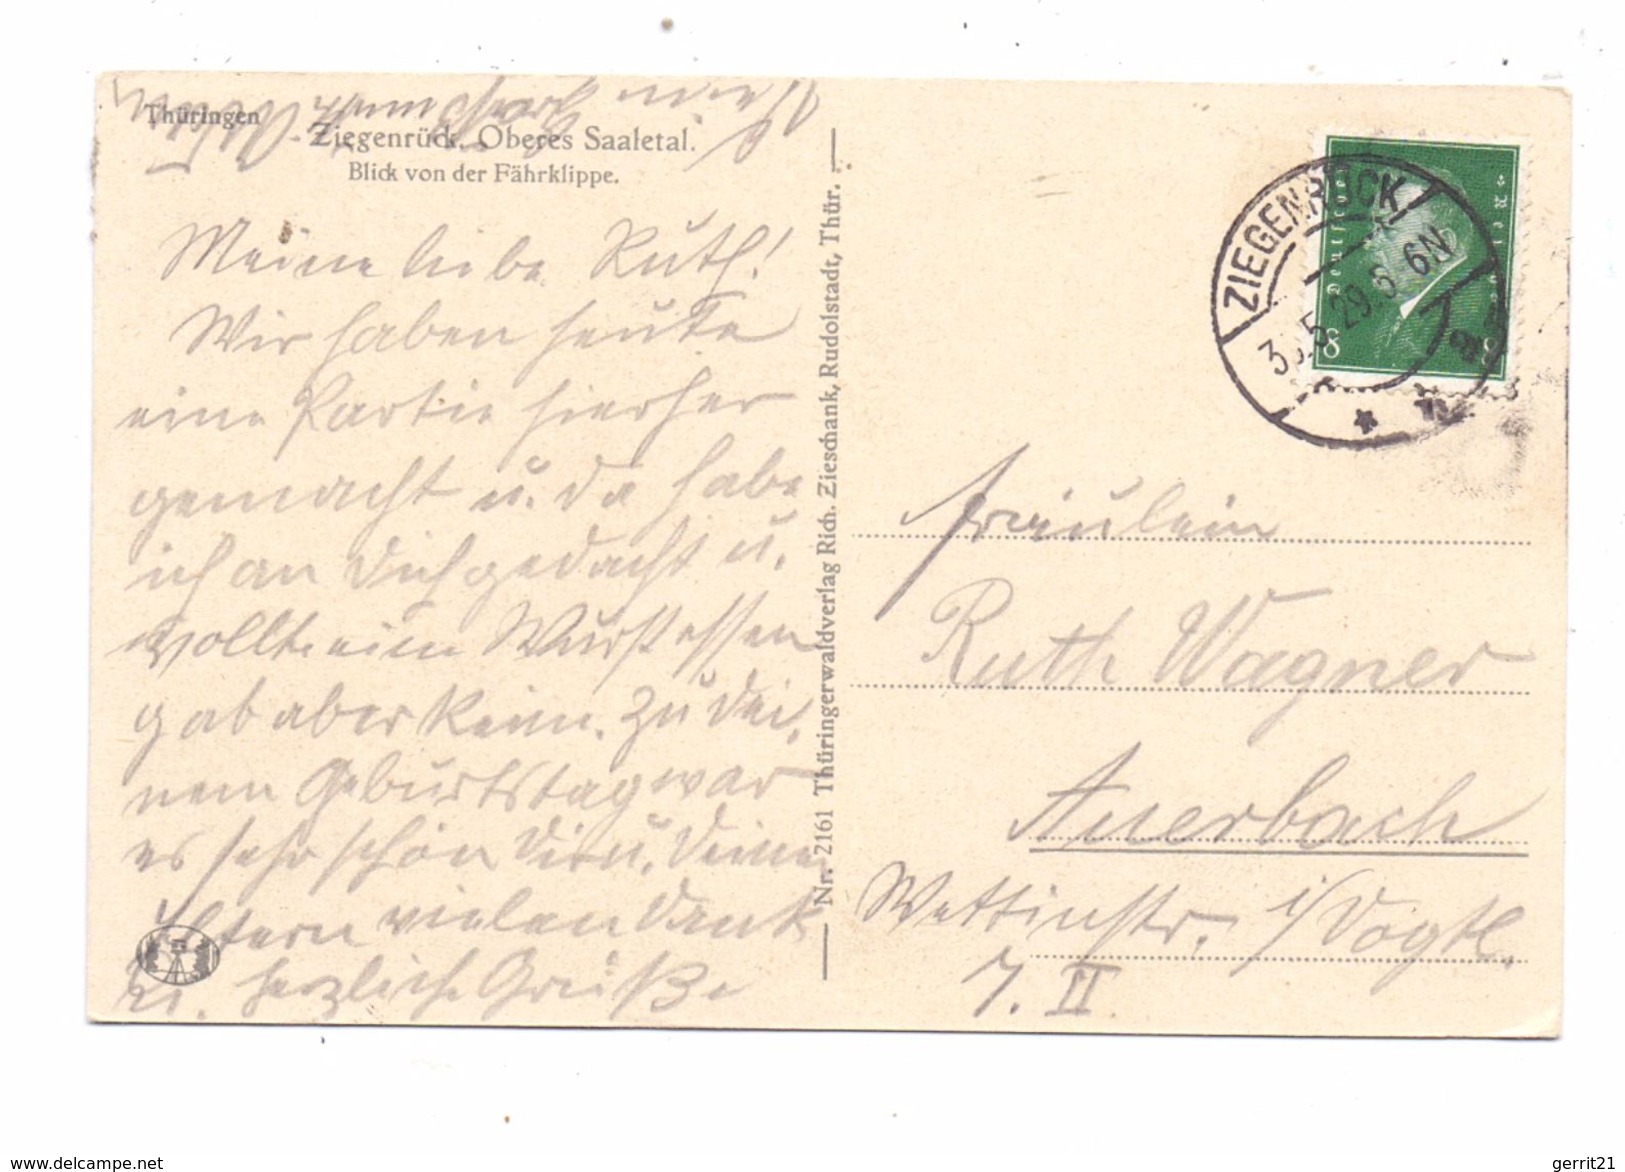 Thüringen
Ziegenrück. Oberes Saaletal.
Blick von der Fährklippe.
Meine liebe Ruth!
Wir haben heute
eine Partie hierher
gemacht u. da habe
ich an Dich gedacht u.
wollte eine Wurst essen
gab aber keine. Zu Dei-
nem Geburtstag war
es sehr schön Dir u. Deinen
Eltern vielen Dank
u. herzliche Grüße
Nr. 2161 Thüringerwaldverlag Rich. Zieschank, Rudolstadt, Thür.
ZIEGENRÜCK
5.29.6 6N
Deutsches
8
Fräulein
Ruth Wagner
Auerbach
Wettinstr. i/Vogtl.
7. II
www.delcampe.net
gerrit21